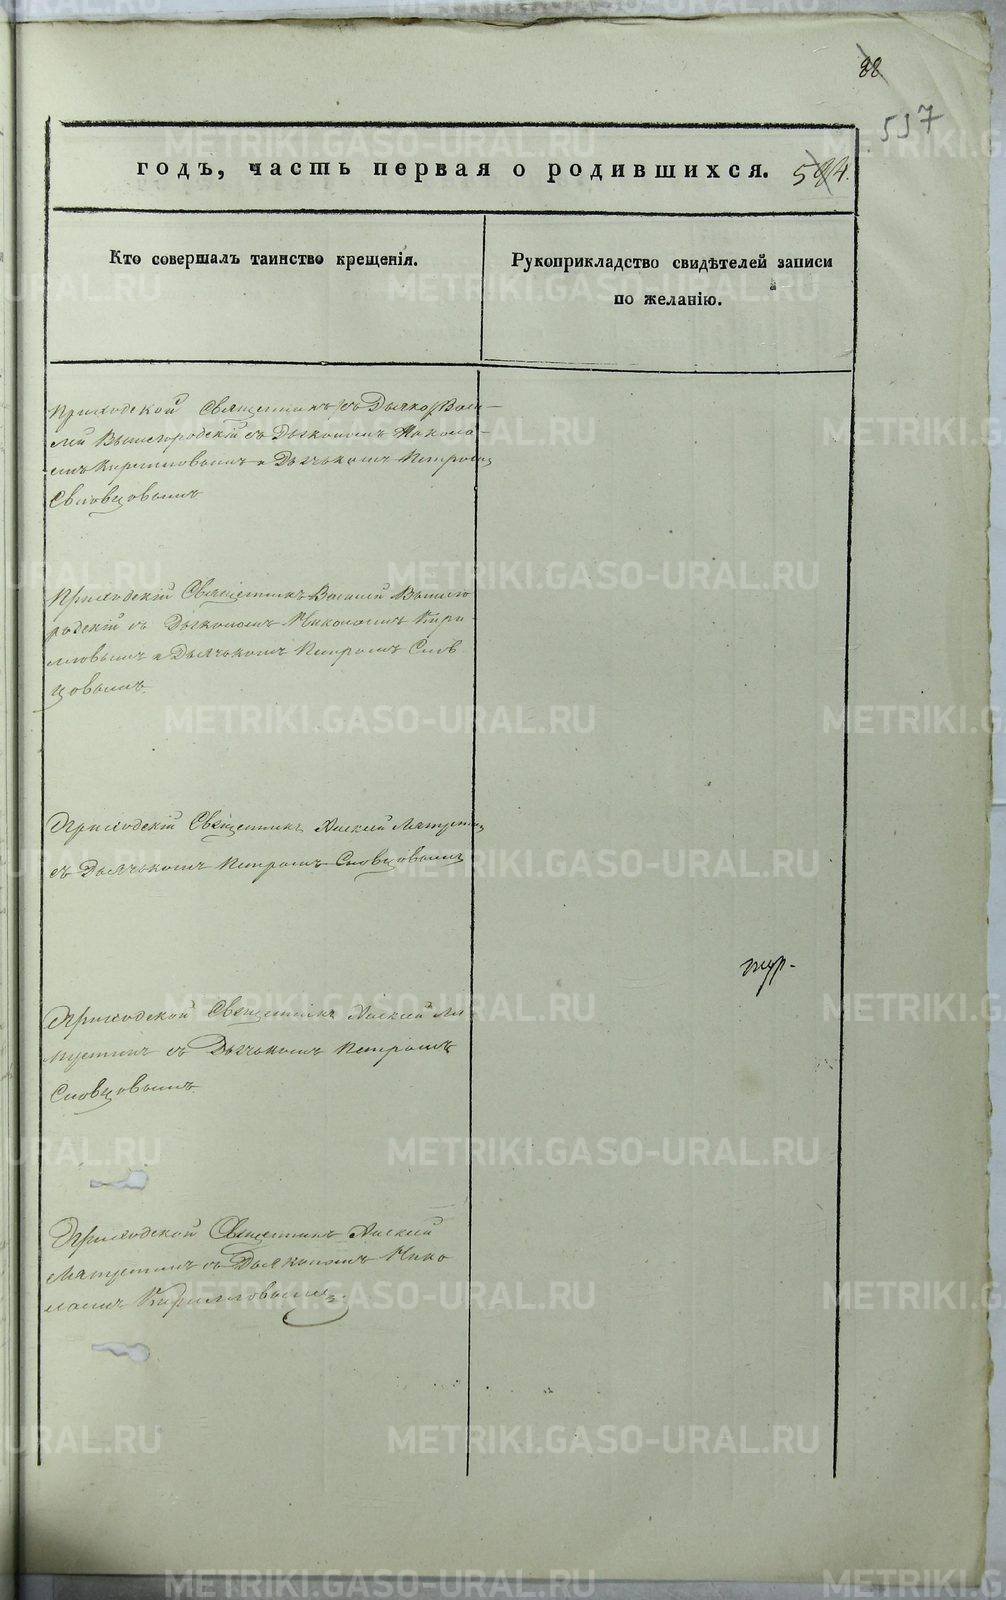 88
537
годъ, часть первая о родившихся. 594.
Кто совершалъ таинство крещенія.
Рукоприкладство свидѣтелей записи
по желанію.
Приходской Священникъ съ Васи-
лій Вышегородскій съ Дьякономъ Никола-
емъ Кирилловымъ и Дьячькомъ Петромъ
Словцовымъ
Приходскій Священникъ Василій Вышего
родскій съ Дьякономъ Николаемъ Кири
ловымъ и Дьячькомъ Петромъ Слов
цовымъ.
Приходскій Священникъ Алексій
съ Дьячькомъ Петромъ Словцовымъ
Приходской Священникъ Алексій Ля
пустинъ съ Дьячькомъ Петромъ
Словцовымъ.
Приходской Священникъ Алексій
Ляпустинъ съ Дьякономъ Нико
лаемъ Кирилловымъ.
METRIKI.GASO-URAL.RU